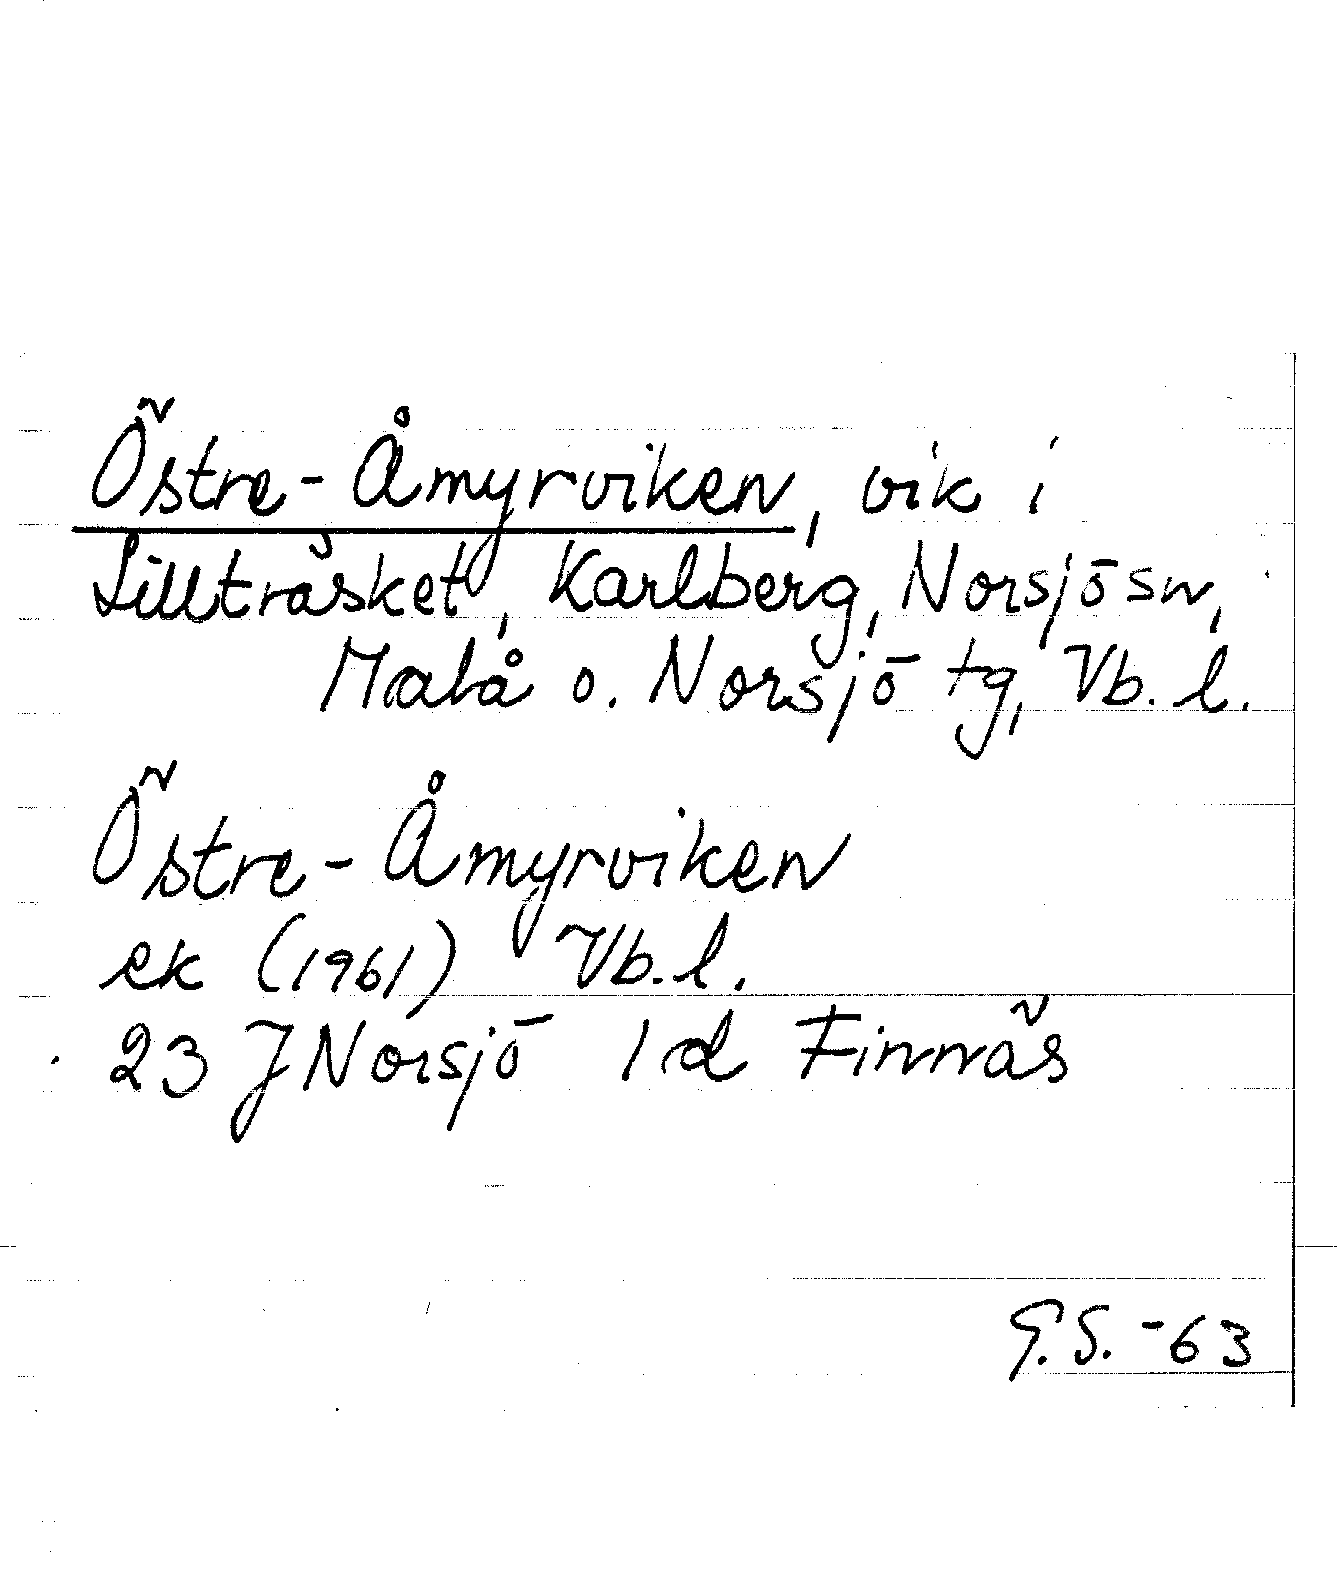 Östre-Åmyrviken, vik i
Lillträsket, Karlberg, Norsjö sn,
Malå o. Norsjö tg, Vb. l.
Östre-Åmyrviken
ek (1961) Vb. l.
23 J Norsjö 1 d Finnäs
G.S. -63